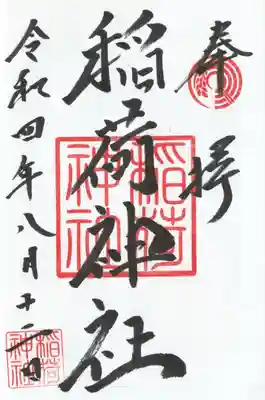 奉拝
稲荷神社
稲荷
神社
令和四年八月十二日
稲荷
神社